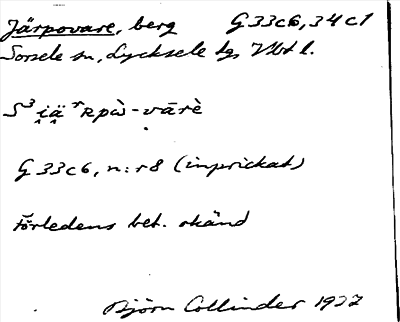 Järpovare, berg G33c6, 34c1
Sorsele sn, Lycksele lgs Vbt l.
S³ i̭ä̭ ʳʀpẁ-vārè
G 33c6, n:r 8 (inprickat)
Förledens bet. okänd
Björn Collinder 1927